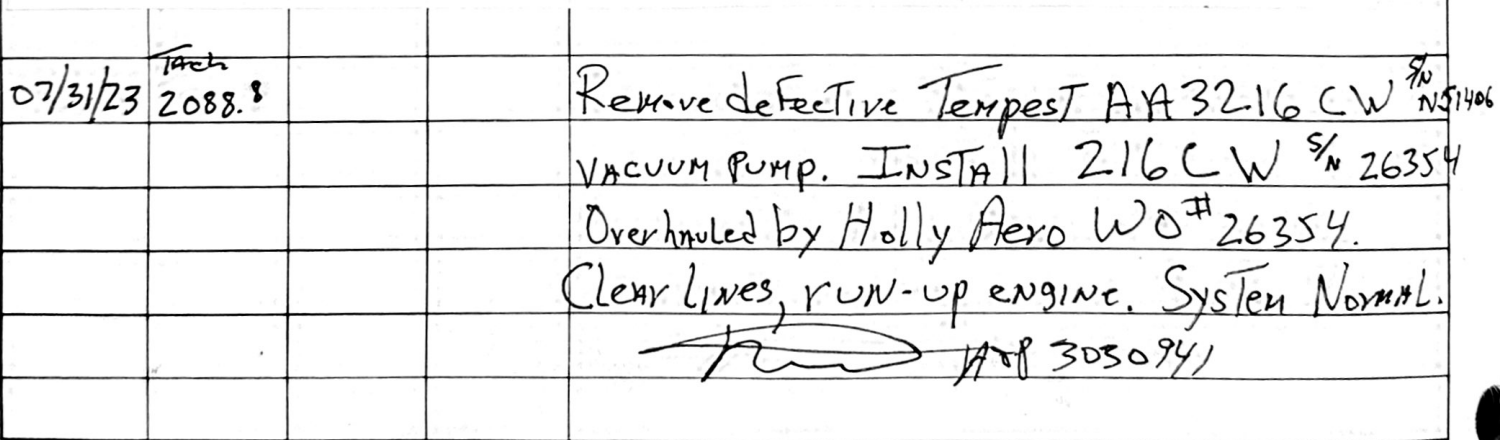 07/31/23 Tach 2088.8 Remove defective Tempest AA3216CW S/N N51406
Vacuum Pump. Install 216CW S/N 26354
Overhauled by Holly Aero WO# 26354.
Clear lines, run-up engine. System Normal.
A&P 3030941